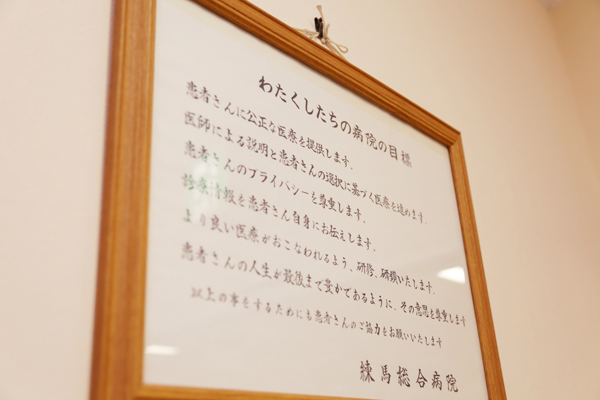 わたくしたちの病院の目標
患者さんに公正な医療を提供します.
医師による説明と患者さんの選択に基づく医療を進めます.
患者さんのプライバシーを尊重します.
診療情報を患者さん自身にお伝えします.
より良い医療がおこなわれるよう、研修、研鑽いたします.
患者さんの人生が最後まで豊かであるように、その意思を尊重します
以上の事をするためにも患者さんのご協力をお願いいたします
練馬総合病院